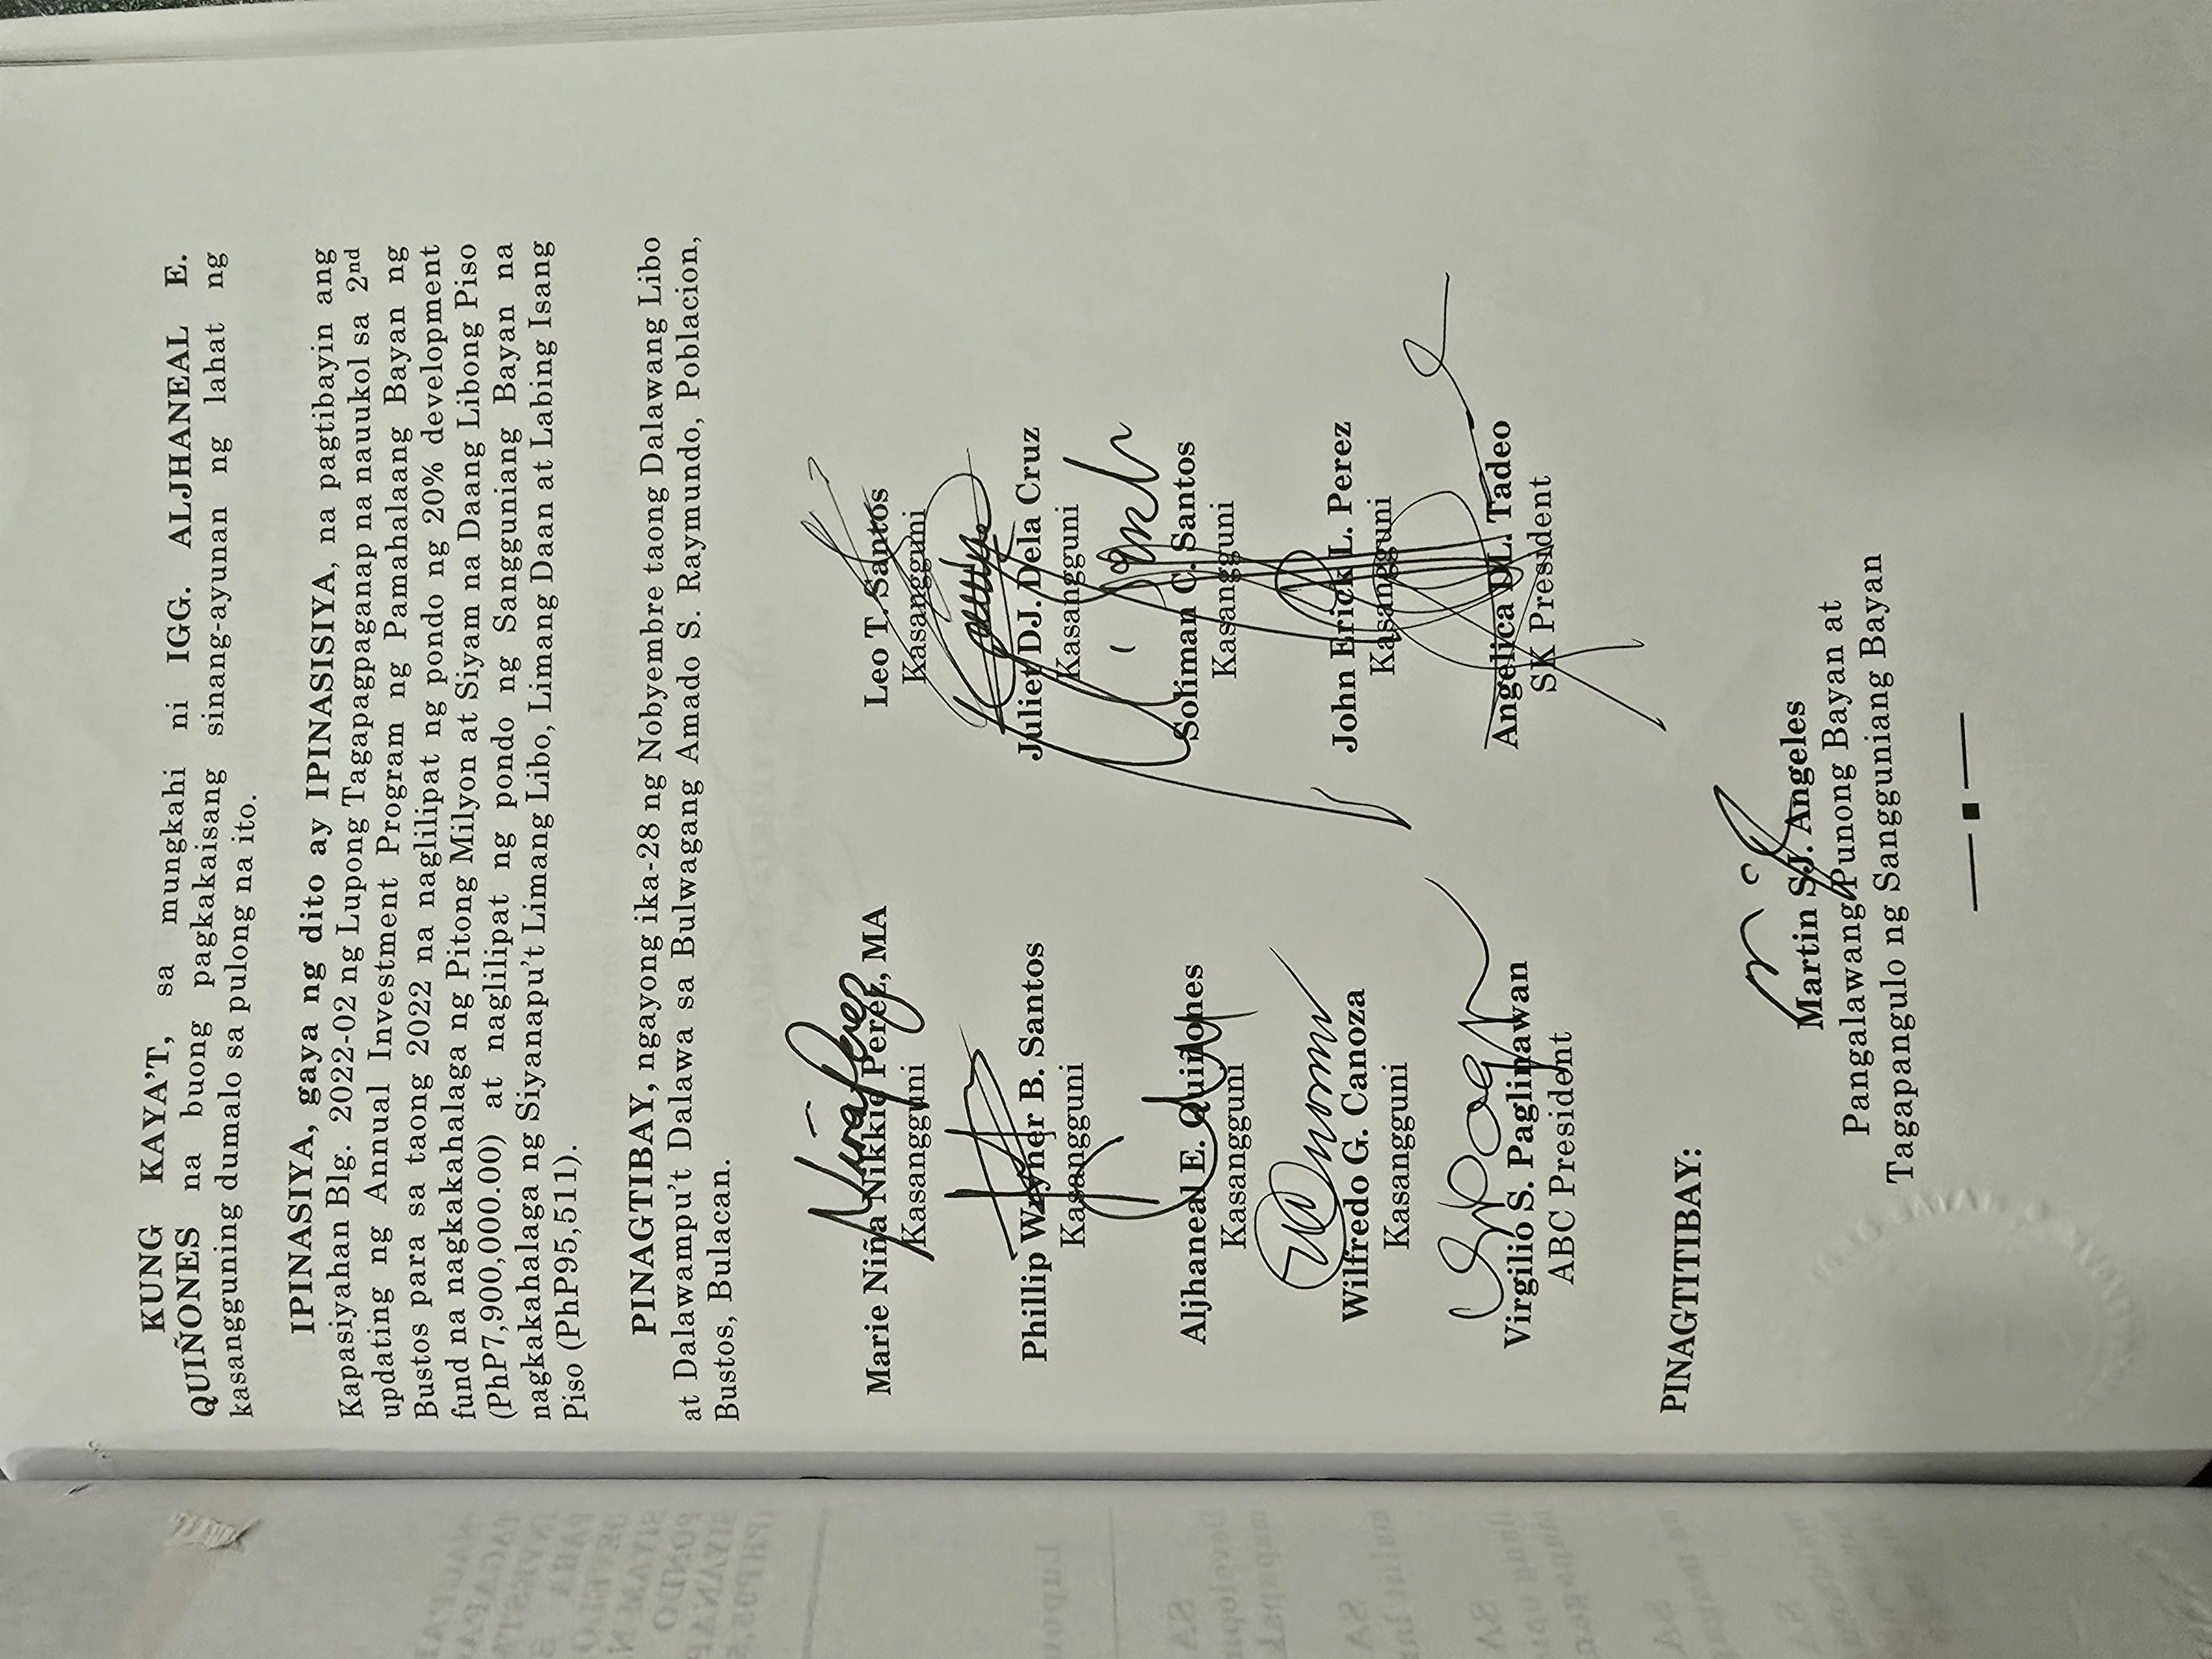 KUNG KAYA'T, sa mungkahi ni IGG. ALJHANEAL E.
QUIÑONES na buong pagkakaisang sinang-ayunan ng lahat ng
kasangguning dumalo sa pulong na ito.
IPINASIYA, gaya ng dito ay IPINASISIYA, na pagtibayin ang
Kapasiyahan Blg. 2022-02 ng Lupong Tagapagpaganap na nauukol sa 2nd
updating ng Annual Investment Program ng Pamahalaang Bayan ng
Bustos para sa taong 2022 na naglilipat ng pondo ng 20% development
fund na nagkakahalaga ng Pitong Milyon at Siyam na Daang Libong Piso
(PhP7,900,000.00) at naglilipat ng pondo ng Sangguniang Bayan na
nagkakahalaga ng Siyanapu't Limang Libo, Limang Daan at Labing Isang
Piso (PhP95,511).
PINAGTIBAY, ngayong ika-28 ng Nobyembre taong Dalawang Libo
at Dalawampu't Dalawa sa Bulwagang Amado S. Raymundo, Poblacion,
Bustos, Bulacan.
Marie Niña Nikkie Perez, MA
Kasangguni
Leo T. Santos
Kasangguni
Phillip Wayner B. Santos
Kasangguni
Juliet DJ. Dela Cruz
Kasangguni
Aljhaneal E. Quiñones
Kasangguni
Soliman C. Santos
Kasangguni
Wilfredo G. Canoza
Kasangguni
John Erick L. Perez
Kasangguni
Virgilio S. Paglinawan
ABC President
Angelica DL. Tadeo
SK President
PINAGTITIBAY:
Martin SJ. Angeles
Pangalawang Punong Bayan at
Tagapangulo ng Sangguniang Bayan